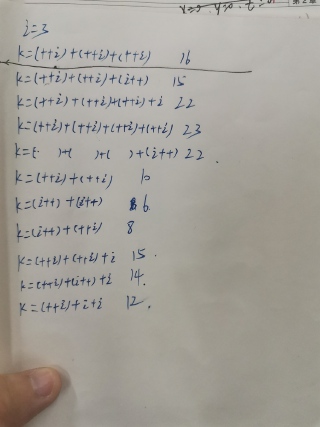 i=3
k=(++i)+(++i)+(++i) 16
k=(++i)+(++i)+(i++) 15
k=(++i)+(++i)+(++i)+i 22
k=(++i)+(++i)+(++i)+(++i) 23
k=(· )+( )+( )+(i++) 22.
k=(++i)+(++i) 10
k=(i++)+(i++) 6
k=(i++)+(++i) 8
k=(++i)+(++i)+i 15.
k=(++i)+(i++)+i 14.
k=(++i)+i+i 12.